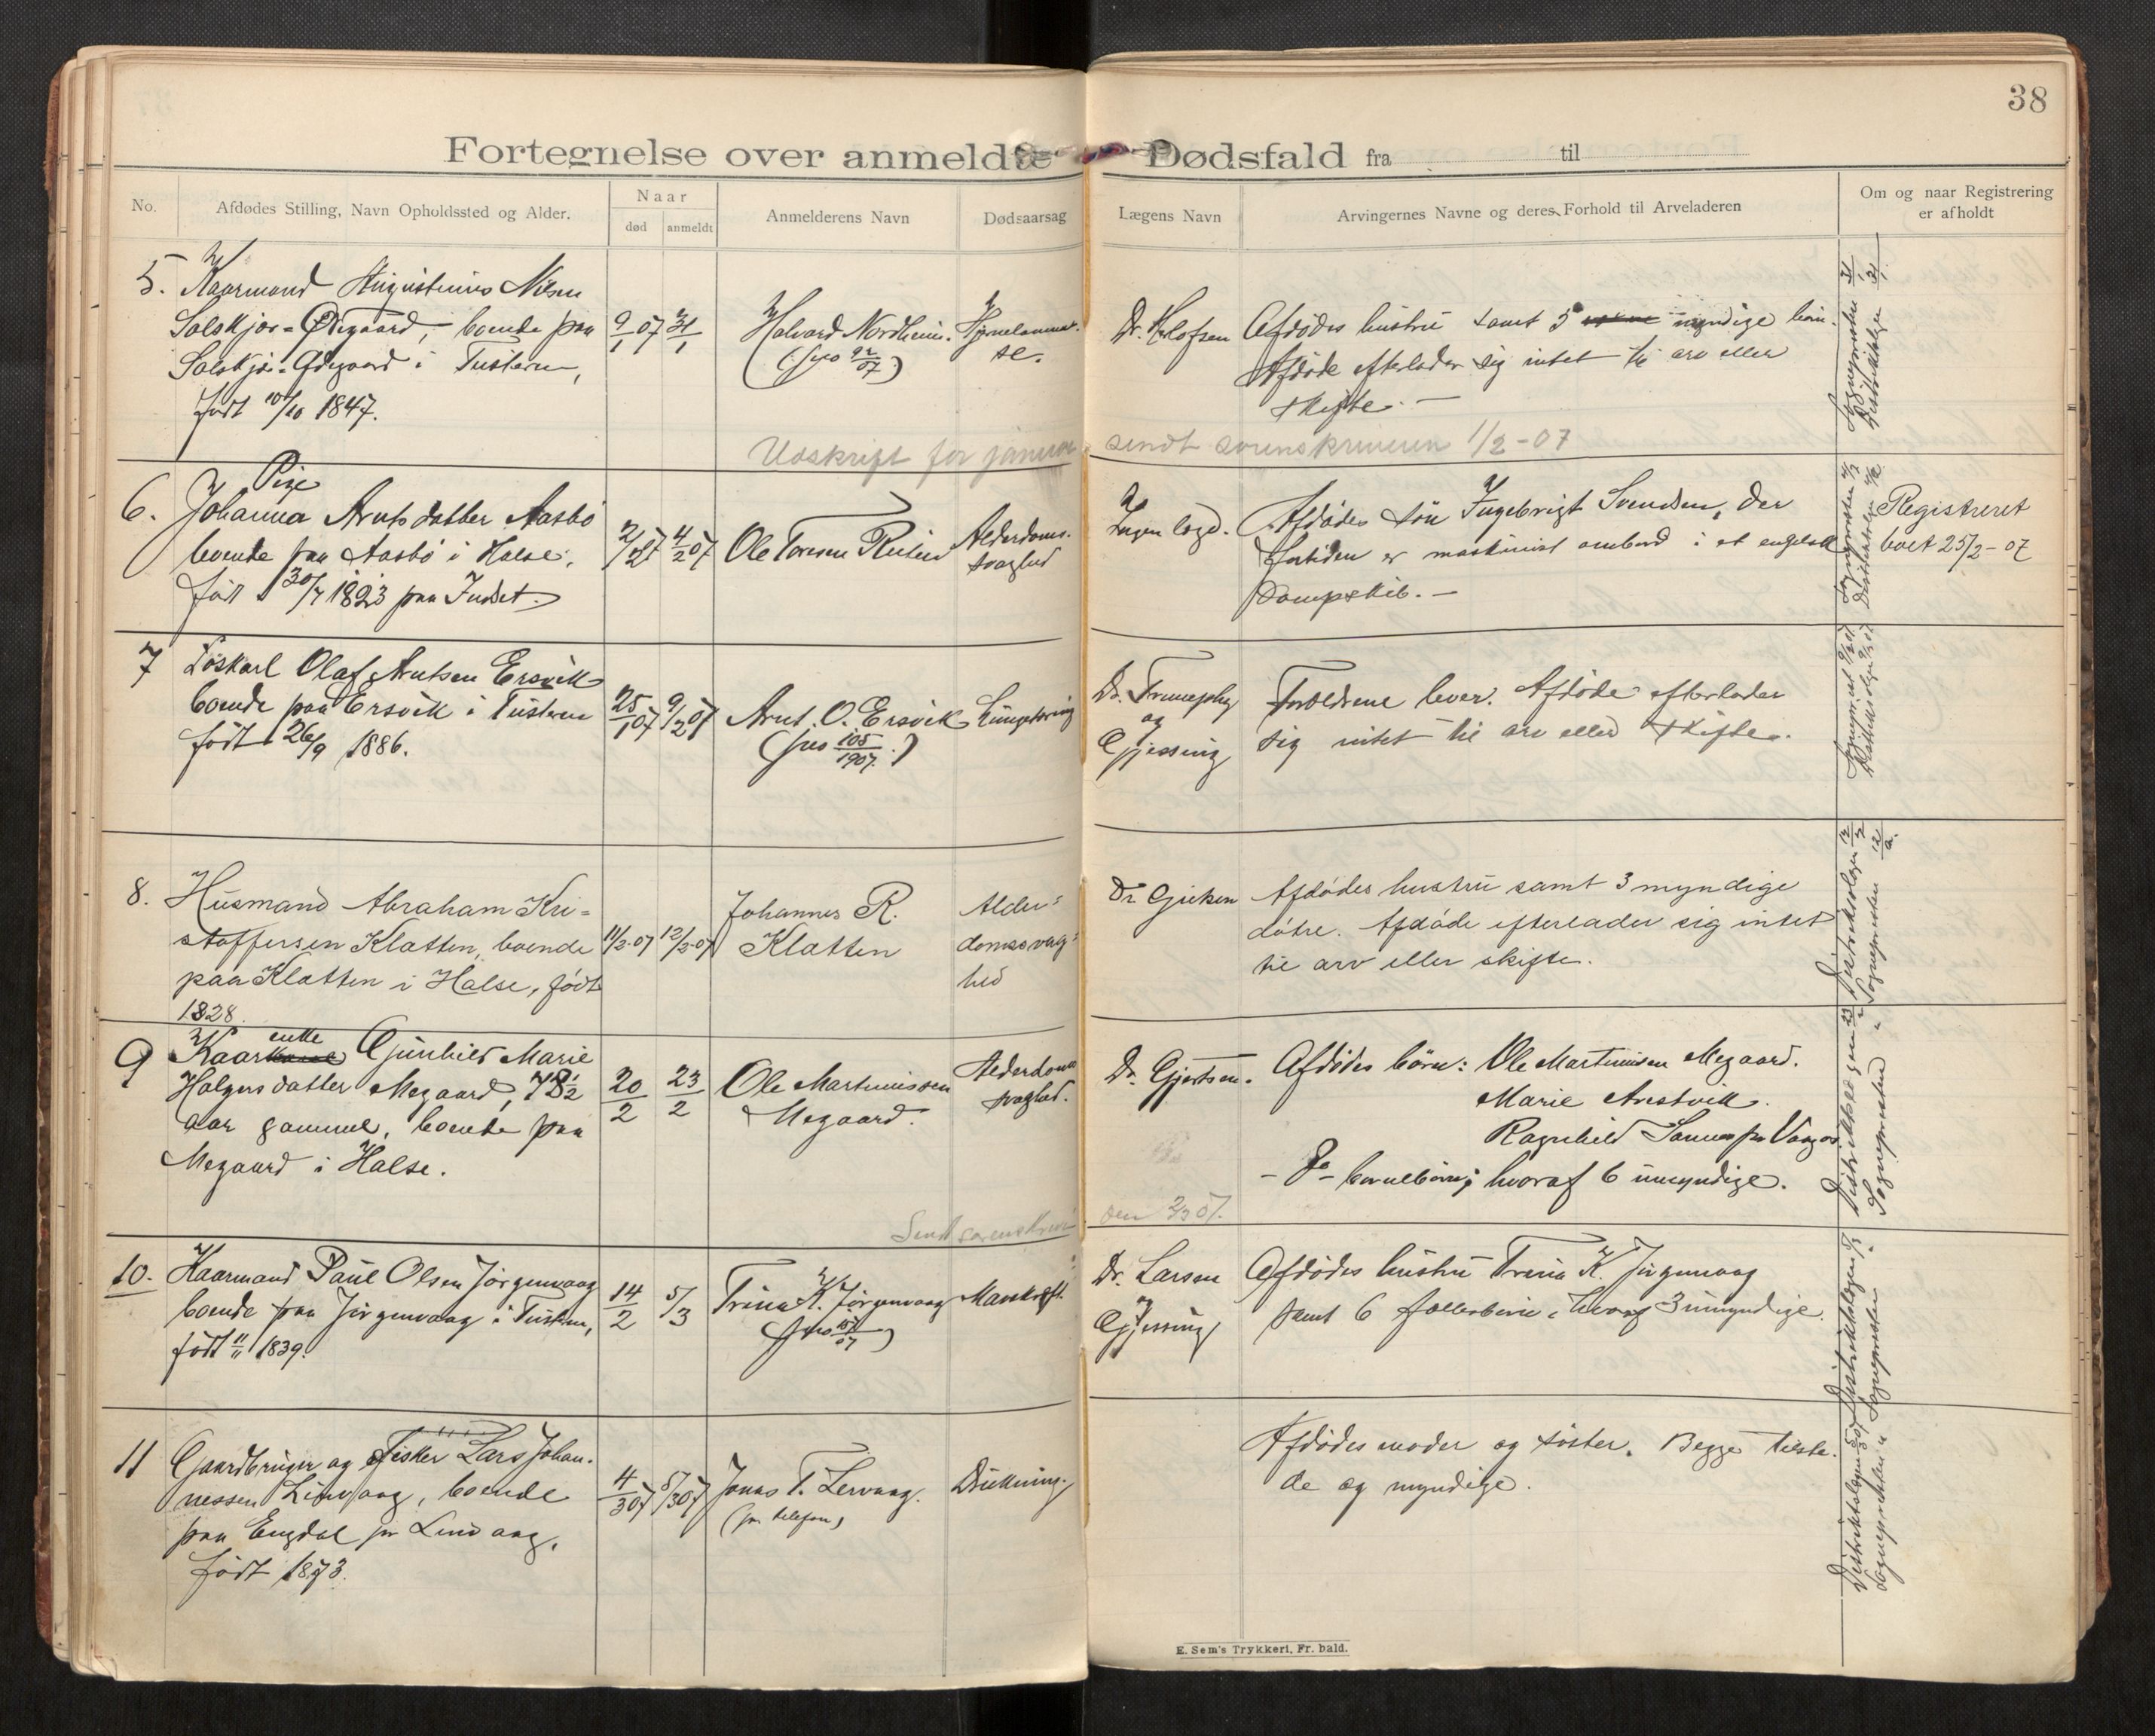 38
Fortegnelse over anmeldte Dødsfald fra til
No.
Afdødes Stilling, Navn Opholdssted og Alder.
Naar
død
anmeldt
Anmelderens Navn
Dødsaarsag
Lægens Navn
Arvingernes Navne og deres Forhold til Arveladeren
Om og naar Registrering
er afholdt
5. Kaarmand Augustinus Nilsen
Solskjør-Ødegaard, boende paa
Solskjør-Ødegaard i Tusteren,
født 10/10 1847.
9/1 07
31/1
Halvard Nordheim.
(pro 92/07)
se.
Dr. Olofsen
Afdødes hustru samt 5 myndige børn.
Afdøde efterlader sig intet til arv eller
skifte. —
Sognepresten 31/1
Distriktslægen 31/1
Udskrift for januar sendt sorenskriveren 1/2-07
6. Pige
Johanna Arntsdatter Aasbø
boende paa Aasbø i Halse,
født 30/7 1823 paa Indset.
2/2 07
4/2 07
Ole Toresen
Alderdoms-
svaghed
Ingen læge.
Afdødes søn Ingebrigt Svendsen, der
fortiden er maskinist ombord i et engelsk
Dampskib. —
Registreret
boet 25/2-07
7 Løskarl Olaf Arntsen Ersvik
boende paa Ersvik i Tusteren
født 26/9 1886.
25/1 07
9/2 07
Arnt. O. Ersvik
(pro 105/1907.)
Lungetæring
og
Gjessing
Forældrene lever. Afdøde efterlader
sig intet til arv eller skifte.
8. Husmand Abraham Kri-
stoffersen Klatten, boende
paa Klatten i Halse, født
1828.
11/2-07
12/2-07
Johannes R.
Klatten
Alder-
domssvag-
hed
Afdødes hustru samt 3 myndige
døtre. Afdøde efterlader sig intet
til arv eller skifte.
Distriktslægen 12/2
Sognepresten 12/2.
9 Kaarenke Gunhild Marie
Halgusdatter Megaard, 78 1/2
aar gammel, boende paa
Megaard i Halse.
20/2
23/2
Ole Martinussen
Megaard.
Alderdoms
svaghed.
Dr. Gjertsen.
Afdødes børn: Ole Martinusen Megaard.
Marie Arestvik.
Ragnhild
- 8 - barnebørn; hvoraf 6 umyndige.
Distriktslægen 23/2
Sognepresten "
Sendt sorenskriv. den 2/3 07.
10. Kaarmand Paul Olsen Jørgenvaag
boende paa Jørgenvaag i Tusteren,
født 11/11 1839.
14/2
5/3
Trina K. Jørgenvaag
(pro 157/07)
Mavekræft.
Dr. Larsen
og
Gjessing
Afdødes hustru Trina K. Jørgenvaag
samt 6 fællesbørn, hvoraf 3 umyndige.
Distriktslægen
Sognepresten "
11 Gaardbruger og Fisker Lars Johan-
nessen Linvaag, boende
paa Engdal pr Linvaag,
født 1873.
4/3 07
5/3 07
Jonas T. Lervaag.
(pr. telefon)
Drukning.
Afdødes moder og søster. Begge tilste-
de og myndige.
Distriktslægen
Sognepresten "
E. Sem's Trykkeri, Fr. hald.